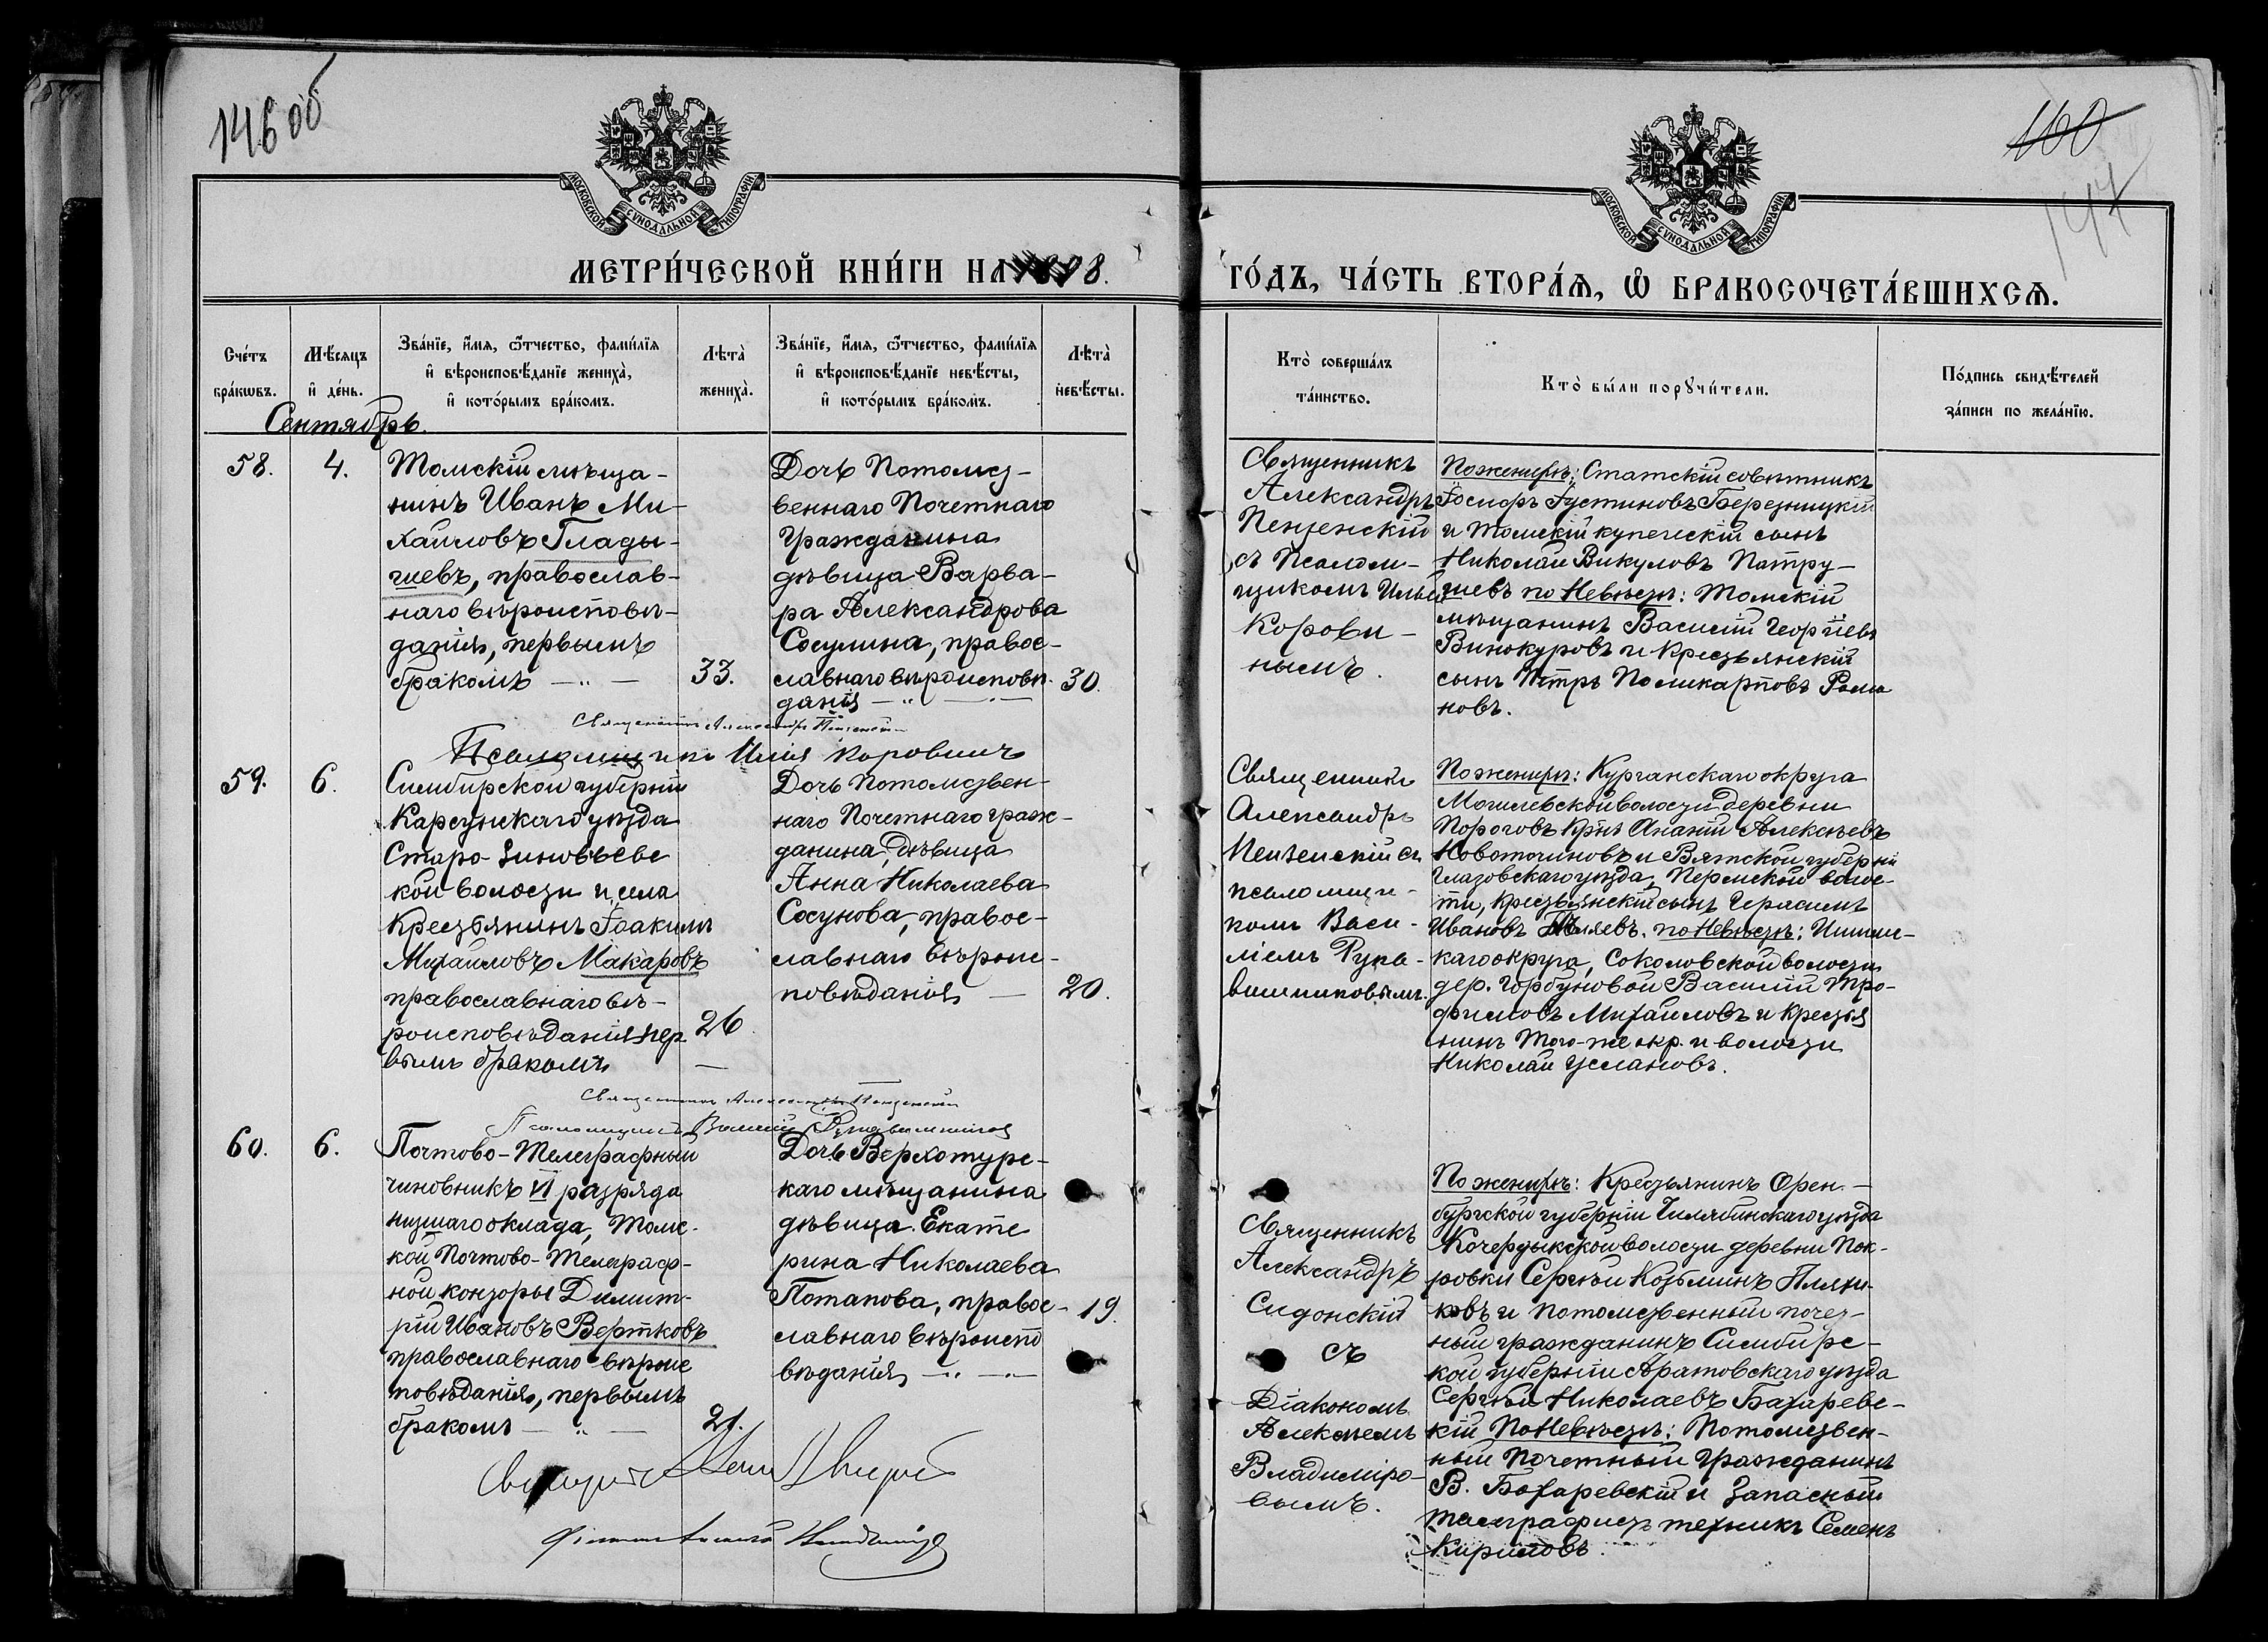 146 об
160
147
МОСКОВСКОЙ СѴНОДАЛЬНОЙ ТИПОГРАФІИ
МОСКОВСКОЙ СѴНОДАЛЬНОЙ ТИПОГРАФІИ
МЕТРИ́ЧЕСКОЙ КНИ́ГИ НА 1898.
ГО́ДЪ, ЧА́СТЬ ВТОРА́Ѧ, Ѡ҆ БРАКОСОЧЕТА́ВШИХСѦ.
Сче́тъ
бра́кѡвъ.
Мѣ́сѧцъ
и҆ де́нь.
Зва́нїе, и҆́мѧ, ѻ҆́тчество, фами́лїѧ
и҆ вѣроисповѣ́данїе жениха̀,
и҆ кото́рымъ бра́комъ.
Лѣта̀
жениха̀.
Зва́нїе, и҆́мѧ, ѻ҆́тчество, фами́лїѧ
и҆ вѣроисповѣ́данїе невѣ́сты,
и҆ кото́рымъ бра́комъ.
Лѣта̀
невѣ́сты.
Кто̀ соверша́лъ
та́инство.
Кто̀ бы́ли порꙋчи́тели.
По́дпись свидѣ́телей
за́писи по жела́нїю.
Сентябрь.
58.
4.
Томскій мѣща-
нинъ Иванъ Ми-
хаиловъ Глады-
шевъ, православ-
наго вѣроисповѣ-
данія, первымъ
бракомъ — „ —
33.
Дочь Потомст-
веннаго Почетнаго
Гражданина
дѣвица Варва-
ра Александрова
Сосулина, правос-
славнаго вѣроисповѣ-
данія — „ —
30.
Священникъ
Александръ
Пензенскій
съ Псалом-
щикомъ Ильей
Корови-
нымъ.
По женихѣ: Статскій совѣтникъ
Іосифъ Іустиновъ Березницкій
и Томскій купеческій сынъ
Николай Викуловъ Патру-
шевъ по Невѣстѣ: Томскій
мѣщанинъ Василій Георгіевъ
Винокуровъ и крестьянскій
сынъ Петръ Поликарповъ Рома
новъ.
Священникъ Александръ Пензенскій
Псаломщикъ Илія Коровинъ
59.
6.
Симбирской губерніи
Карсунскаго уѣзда
Старо-Зиновьевс
кой волости и села
Крестьянинъ Іоакимъ
Михаиловъ Макаровъ
православнаго вѣ-
роисповѣданія пер
вымъ бракомъ —
26
Дочь Потомствен-
наго Почетнаго граж-
данина, дѣвица
Анна Николаева
Сосунова, правос-
лавнаго вѣроис-
повѣданія —
20.
Священникъ
Александръ
Пензенскій съ
псаломщи-
комъ Васи-
ліемъ Рука-
вишниковымъ.
По женихѣ: Курганскаго округа
Могилевской волости деревни
Пороговъ Крн Ананій Алексѣевъ
Новоточиновъ и Вятской губерніи
Глазовскаго уѣзда, Пермской волос-
ти, крестьянскій сынъ Герасимъ
Ивановъ по Невѣстѣ: Ишим-
скаго округа, Соколовской волости
дер. Горбуновой Василій Тро-
фимовъ Михаиловъ и крестья
нинъ того-же окр. и волости
Николай Услановъ.
Священникъ Александръ Пензенскій
Псаломщикъ Василій Рукавишниковъ
60.
6.
Почтово-Телеграфный
чиновникъ VI разряда
низшаго оклада, Томс-
кой Почтово-Телеграф-
ной конторы Димит-
рій Ивановъ Вертковъ
православнаго вѣроис
повѣданія, первымъ
бракомъ — „ —
21.
Дочь Верхотурс-
каго мѣщанина
дѣвица Екате
рина Николаева
Потапова, правос-
славнаго вѣроиспо
вѣданія — „ —
19.
Священникъ
Александръ
Сидонскій
съ
Діакономъ
Алексѣемъ
Владиміро-
вымъ.
По женихѣ: Крестьянинъ Орен-
бургской губерніи Челябинскаго уѣзда
Кочердыкской волости деревни Пок-
ровки Сергѣй Козьминъ Пляхи-
ковъ и потомственный почет-
ный гражданинъ Симбирс-
кой губерніи Аратовскаго уѣзда
Сергѣй Николаевъ Бахаревс-
кій По Невѣстѣ: Потомствен-
ный Почетный Гражданинъ
В. Бахаревскій и Запасный
телеграфистъ техникъ Семенъ
Кириловъ.